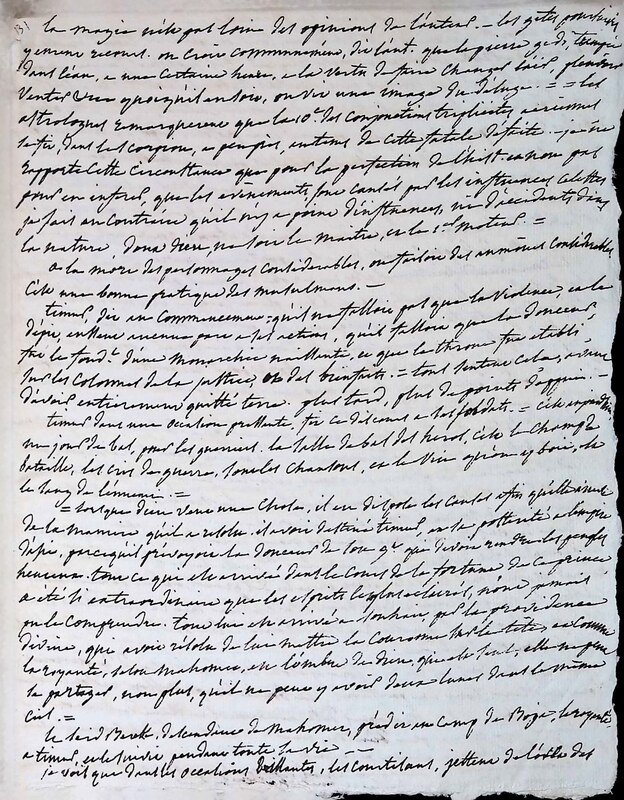 la magie n'été pas loin des opinions de l'auteur. – les gètes poursuivis
y eurent recours. on croit communément, dit l'aut. que la pierre gedé, trempée
dans l'eau, a une certaine heure, a la vertu de faire changer l'air, pleuvoir
venter &c quoiqu'il en soit, on vit une image du déluge. = = les
astrologues remarquerent que la 10e des conjonctions triplicités aeriennes
se fit, dans le scorpion, a peu près, au tems de cette fatale defaite. – je n'ai
rapporté cette circonstance que pour la perfection de l'hist. et non pas
pour en inférer, que les evènements sont causés par les influences celestes
je sais au contraire qu'il n'y a point d'influences, ni d'accidents dans
la nature, dont dieu, ne soit le maitre, et le seul moteur. =
a la mort des personnages considérables, on faisoit des aumones considérables
c'est une bonne pratique des musulmans. –
timur, dit au commencement qu'il ne falloit pas que la violence, et le
dépit, eussent aucune part a ses actions, qu'il falloit que la douceur,
fut le fond.t d'une monarchie naissante, et que le throne fut etabli
sur les colonnes de la justice, et des bienfaits. = tous sentent cela, avant
d'avoir entierement quitté terre. plus tard, plus de points d'appui. –
timur dans une occation pressante, fit ce discours a ses soldats. = c'est aujourd'hui
un jour de bal, pour les guerriers. la salle de bal des heros, c'est le champ de
bataille, les cris de guerre, sont les chansons, et le vin qu'on y boit, est
le sang de l'ennemi. =
= lorsque dieu veut une chose, il en dispose les causes afin qu'elle arrive
de la maniere qu'il a resolu. il avoit destiné timur, et sa postérité a l'empire
d'asie, parcequ'il prévoyoit la douceur de son gt qui devoit rendre les peuples
heureux. tout ce qui est arrivé dans le cours de la fortune de ce prince
a été si extraordinaire que les esprits les plus eclairés, n'ont jamais
pu le comprendre. tout lui est arrivé a souhait, par la providence
divine, qui avoit résolu de lui mettre la couronne sur la tête, et comme
la royauté, selon mahomet, est l'ombre de dieu, qui est seul, elle ne peut
se partager, non plus, qu'il ne peut y avoir deux lunes dans le même
ciel. =
le said Bereke, descendant de mahomet, prédit au camp de Boja, la royauté,
a timur, et le suivit pendant toute sa vie – –
je vois que dans les occations brillantes, les courtisans, jettent de l'or et des